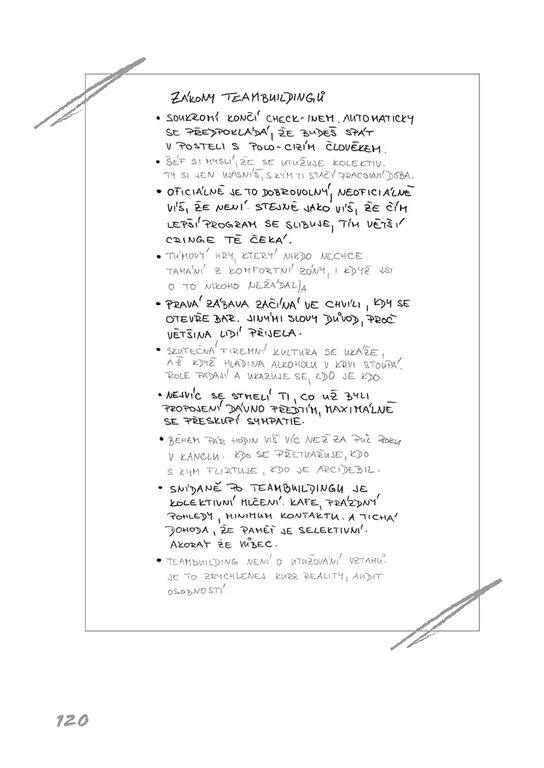 ZÁKONY TEAMBUILDINGŮ
• SOUKROMÍ KONČÍ CHECK-INEM. AUTOMATICKY
SE PŘEDPOKLÁDÁ, ŽE BUDEŠ SPÁT
V POSTELI S POLO-CIZÍM ČLOVĚKEM.
• ŠÉF SI MYSLÍ, ŽE SE UTUŽUJE KOLEKTIV.
TY SI JEN UJASNÍŠ, S KÝM TI STAČÍ PRACOVNÍ DOBA.
• OFICIÁLNĚ JE TO DOBROVOLNÝ, NEOFICIÁLNĚ
VÍŠ, ŽE NENÍ. STEJNĚ JAKO VÍŠ, ŽE ČÍM
LEPŠÍ PROGRAM SE SLIBUJE, TÍM VĚTŠÍ
CRINGE TĚ ČEKÁ.
• TÝMOVÝ HRY, KTERÝ NIKDO NECHCE.
TAHÁNÍ Z KOMFORTNÍ ZÓNY, I KDYŽ JSI
O TO NIKOHO NEŽÁDAL/A
• PRAVÁ ZÁBAVA ZAČÍNÁ VE CHVÍLI, KDY SE
OTEVŘE BAR. JINÝMI SLOVY DŮVOD, PROČ
VĚTŠINA LIDÍ PŘIJELA.
• SKUTEČNÁ FIREMNÍ KULTURA SE UKÁŽE,
AŽ KDYŽ HLADINA ALKOHOLU V KRVI STOUPÁ.
ROLE PADAJÍ A UKAZUJE SE, KDO JE KDO.
• NEJVÍC SE STMELÍ TI, CO UŽ BYLI
PROPOJENÍ DÁVNO PŘEDTÍM, MAXIMÁLNĚ
SE PŘESKUPÍ SYMPATIE.
• BĚHEM PÁR HODIN VÍŠ VÍC NEŽ ZA PŮL ROKU
V KANCLU. KDO SE PŘETVAŘUJE, KDO
S KÝM FLIRTUJE, KDO JE ARCIDEBIL.
• SNÍDANĚ PO TEAMBUILDINGU JE
KOLEKTIVNÍ MLČENÍ. KAFE, PRÁZDNÝ
POHLEDY, MINIMUM KONTAKTU. A TICHÁ
DOHODA, ŽE PAMĚŤ JE SELEKTIVNÍ.
AKORÁT ŽE VŮBEC.
• TEAMBUILDING NENÍ O UTUŽOVÁNÍ VZTAHŮ.
JE TO ZRYCHLENEJ KURZ REALITY, AUDIT
OSOBNOSTÍ.
120